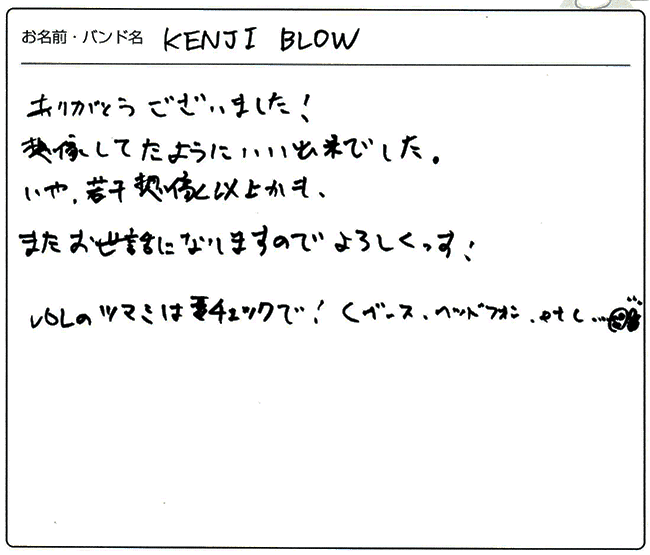 お名前・バンド名 KENJI BLOW
ありがとうございました!
想像してたようにいい出来でした。
いや、若干想像以上かも、
またお世話になりますのでよろしくっす!
VOLのツマミは要チェックで! くベース、ヘッドフォン、etc...